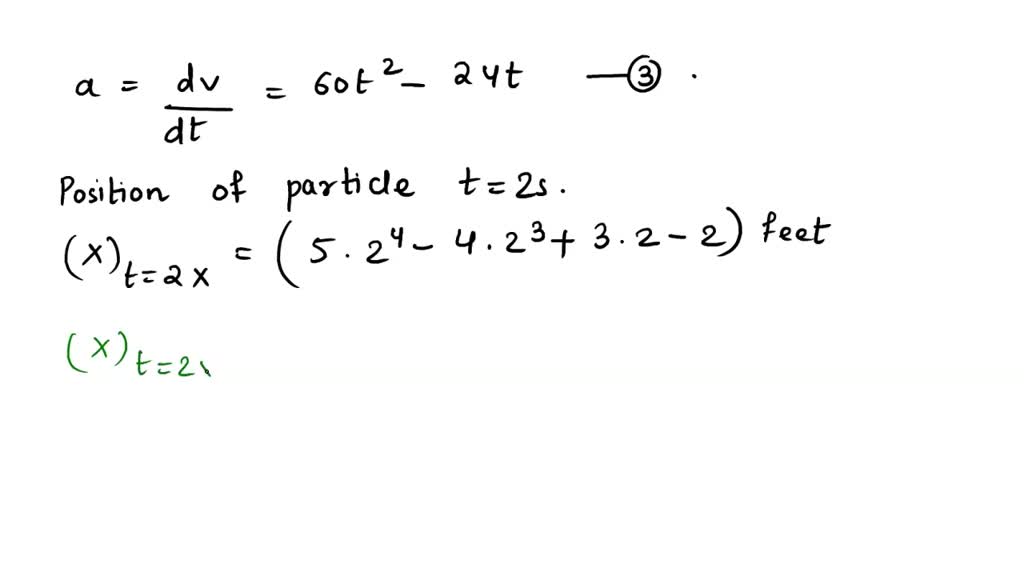 a = dv/dt = 60t² - 24t —③ .
Position of particle t = 2s.
(x)t=2x = (5 . 2⁴ - 4 . 2³ + 3 . 2 - 2) feet
(x)t=2